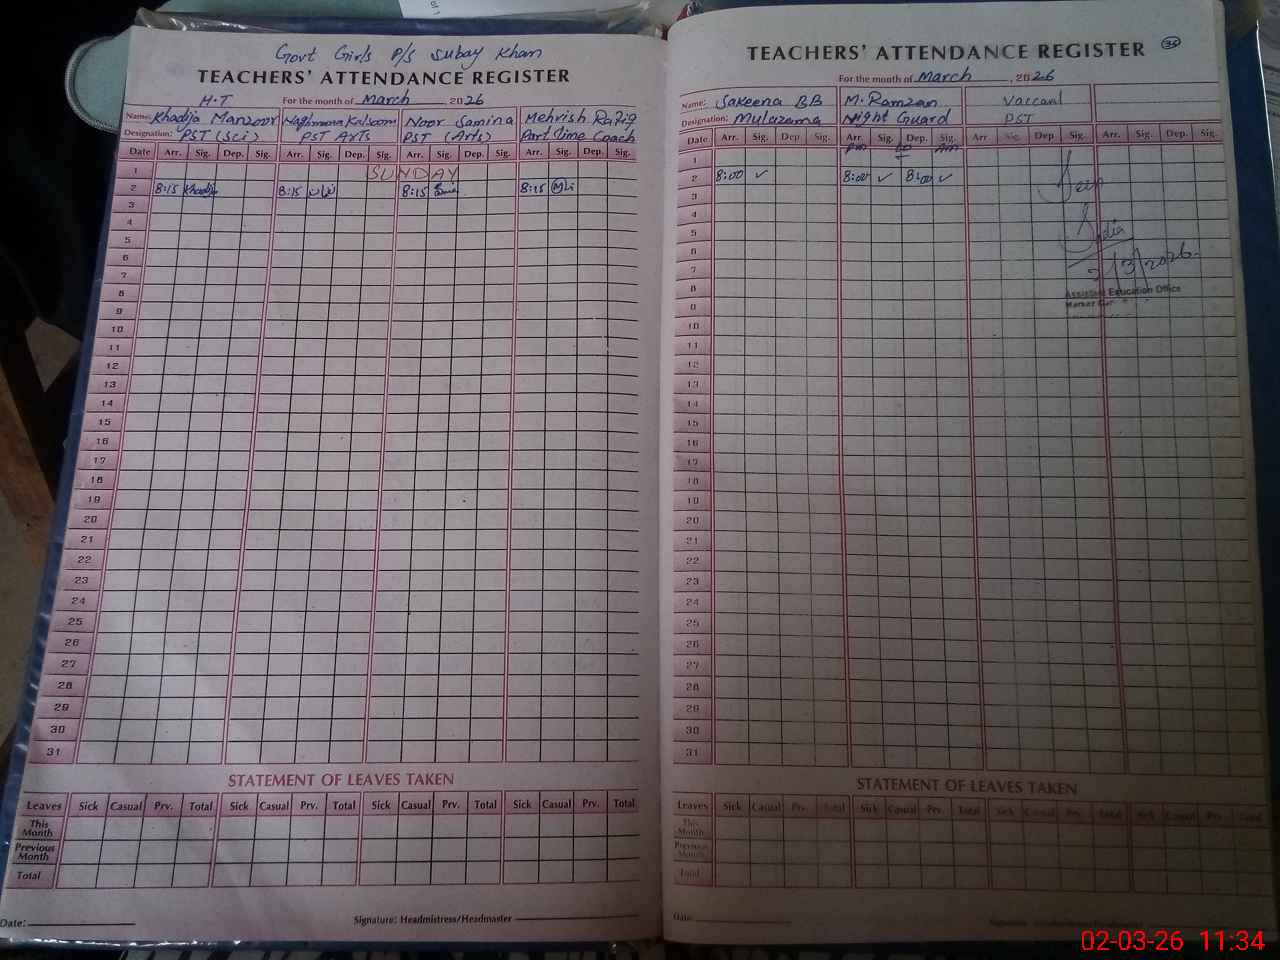 Govt Girls P/S Subay Khan
TEACHERS' ATTENDANCE REGISTER
H.T
For the month of March, 2026
Name: Khadija Manzoor Naghmana Kalsoom Noor Samina Mehrish Rafiq
Designation: PST (Sci) PST Arts PST (Arts) Part Time Coach
Date Arr. Sig. Dep. Sig. Arr. Sig. Dep. Sig. Arr. Sig. Dep. Sig. Arr. Sig. Dep. Sig.
1 SUNDAY
2 8:15 Khadija 8:15 8:15 8:15
3
4
5
6
7
8
9
10
11
12
13
14
15
16
17
18
19
20
21
22
23
24
25
26
27
28
29
30
31
STATEMENT OF LEAVES TAKEN
Leaves Sick Casual Prv. Total Sick Casual Prv. Total Sick Casual Prv. Total Sick Casual Prv. Total
This Month
Previous Month
Total
Date: Signature: Headmistress/Headmaster
TEACHERS' ATTENDANCE REGISTER
35
For the month of March, 2026
Name: Sakeena BB M. Ramzan Vaccant
Designation: Mulazama Night Guard PST
Date Arr. Sig. Dep. Sig. Arr. Sig. Dep. Sig. Arr. Sig. Dep Sig. Arr. Sig. Dep. Sig.
1 Pm to Am
2 8:00 ✓ 8:00 ✓ 8:00 ✓
3
4
5
6
7
8
9
10
11
12
13
14
15
16
17
18
19
20
21
22
23
24
25
26
27
28
29
30
31
Seen
Sadia
2/3/2026
Assistant Education Office
Markaz
STATEMENT OF LEAVES TAKEN
Leaves Sick Casual Prv. Total Sick Casual Prv. Total Sick Casual Prv. Total Sick Casual Prv. Total
This Month
Previous Month
Total
Date:
02-03-26 11:34